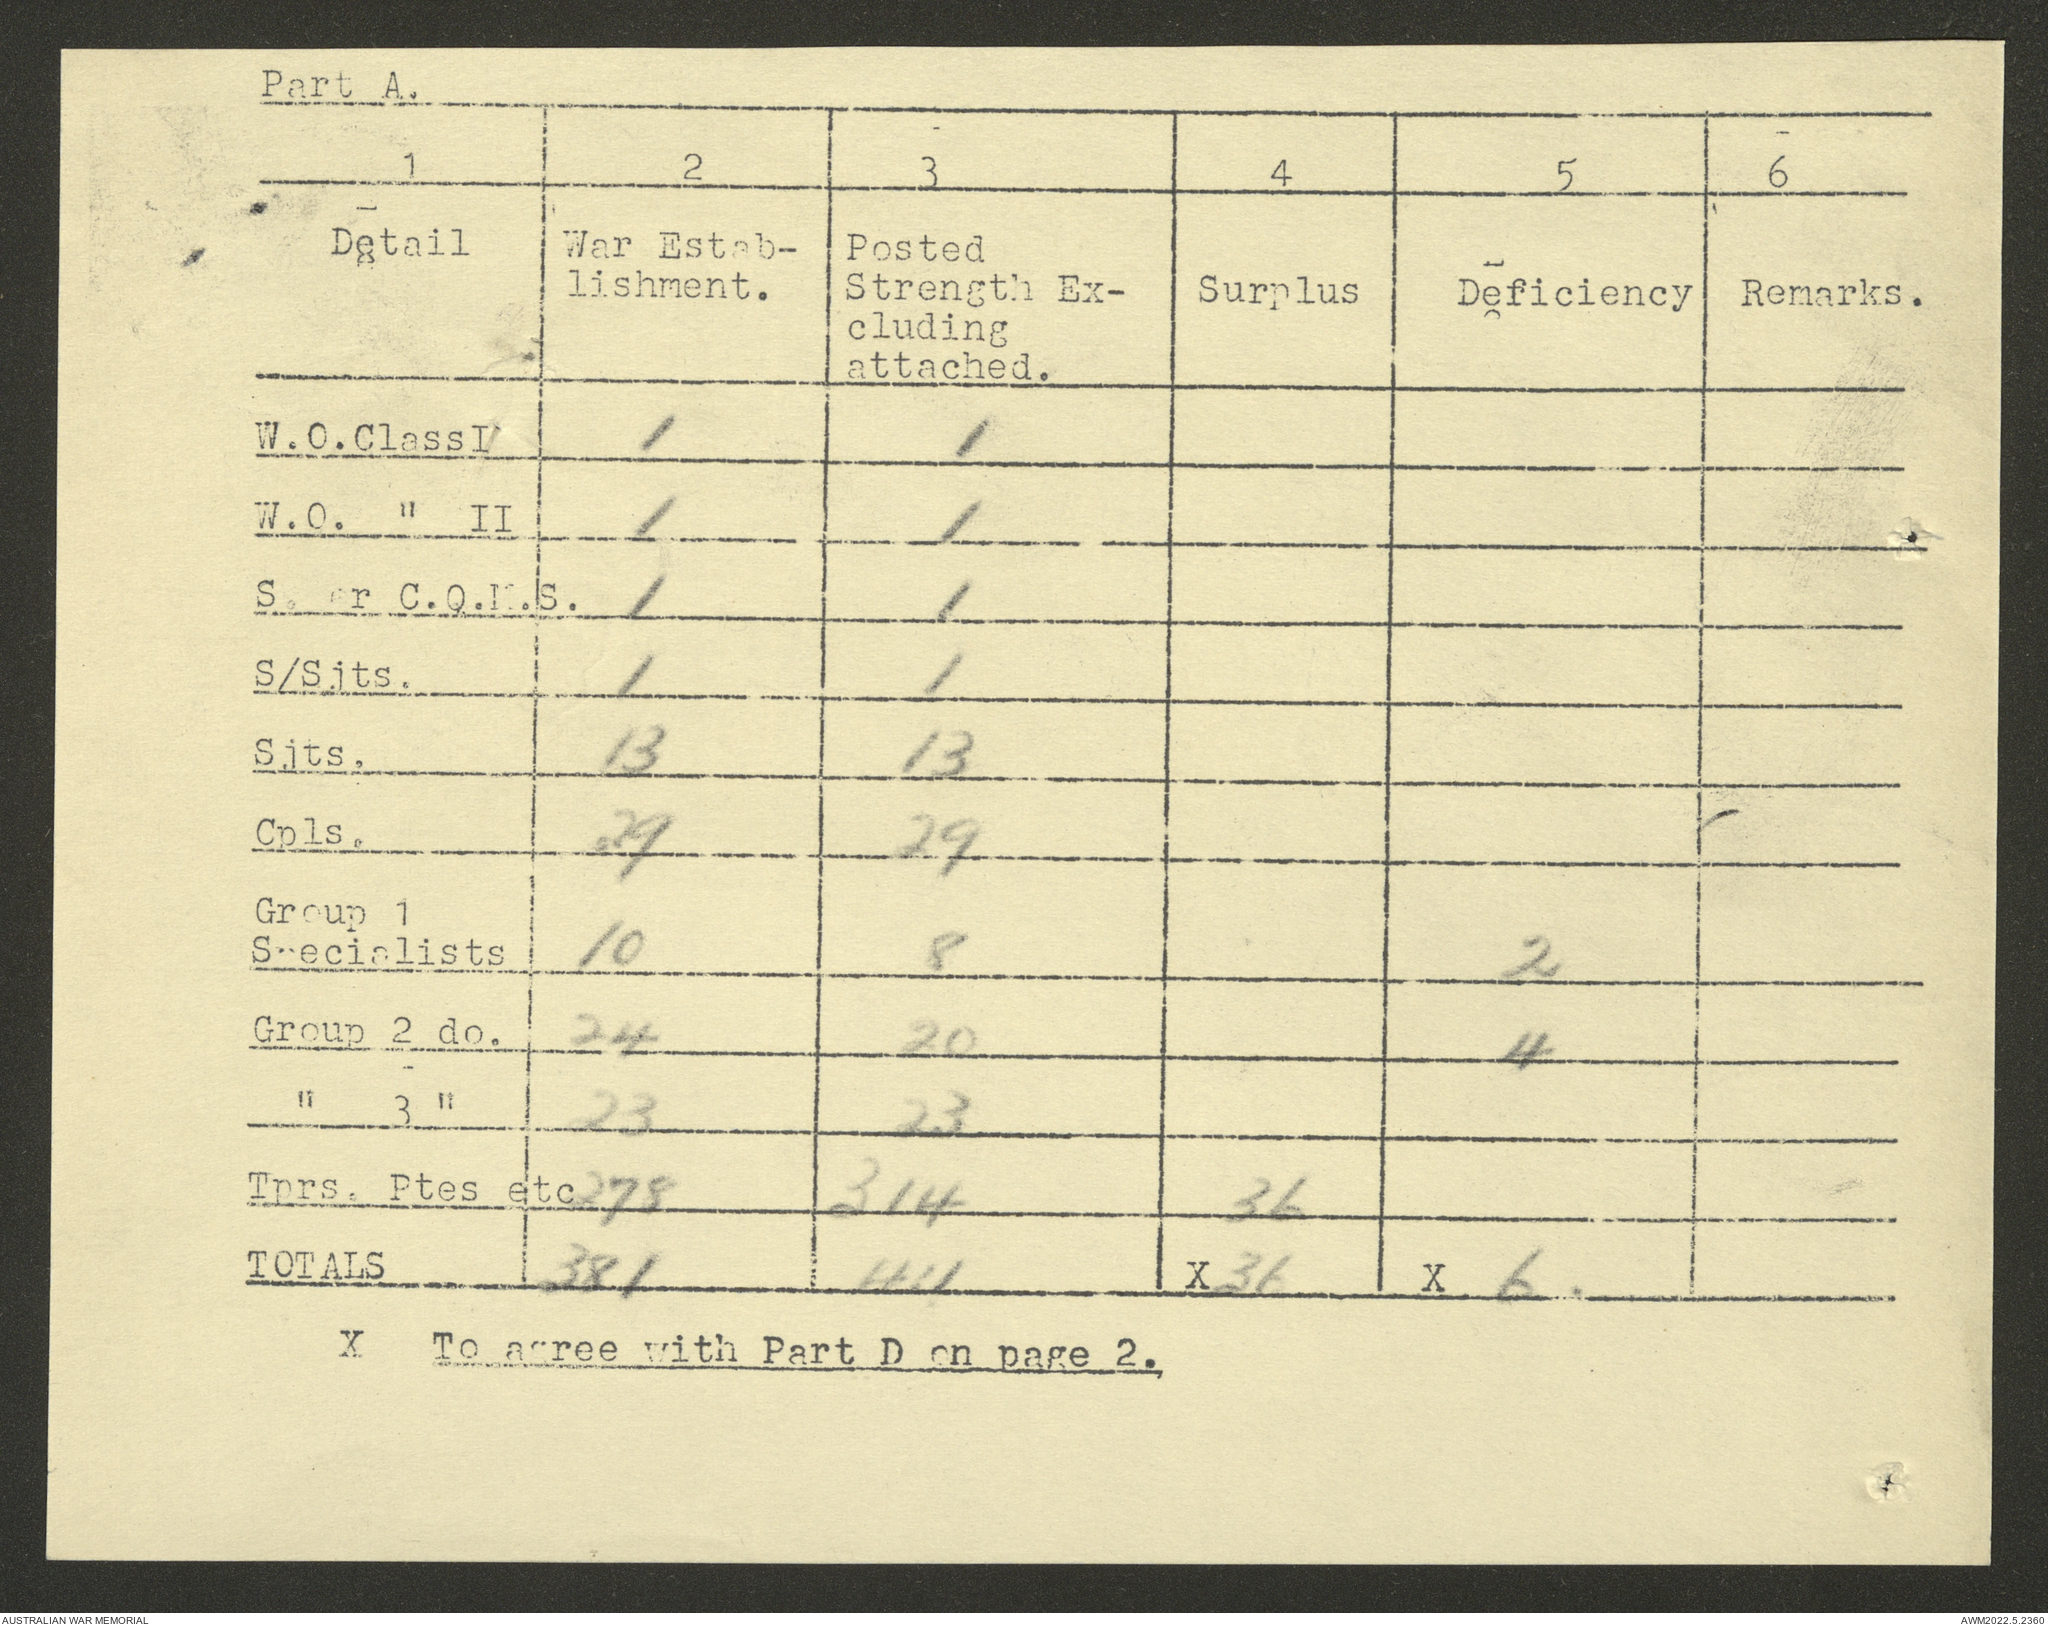 Part A.
1 2 3 4 5 6
Detail War Estab- Posted
lishment. Strength Ex- Surplus Deficiency Remarks.
cluding
attached.
W.O.ClassI 1 1
W.O. " II 1 1
S. or C.Q.M.S. 1 1
S/Sjts. 1 1
Sjts. 13 13
Cpls. 29 29
Group 1
Specialists 10 8 2
Group 2 do. 24 20 4
" 3 " 23 23
Tprs. Ptes etc 278 314 36
TOTALS 381 411 X 36 X 6.
X To agree with Part D on page 2.
AUSTRALIAN WAR MEMORIAL AWM2022.5.2360